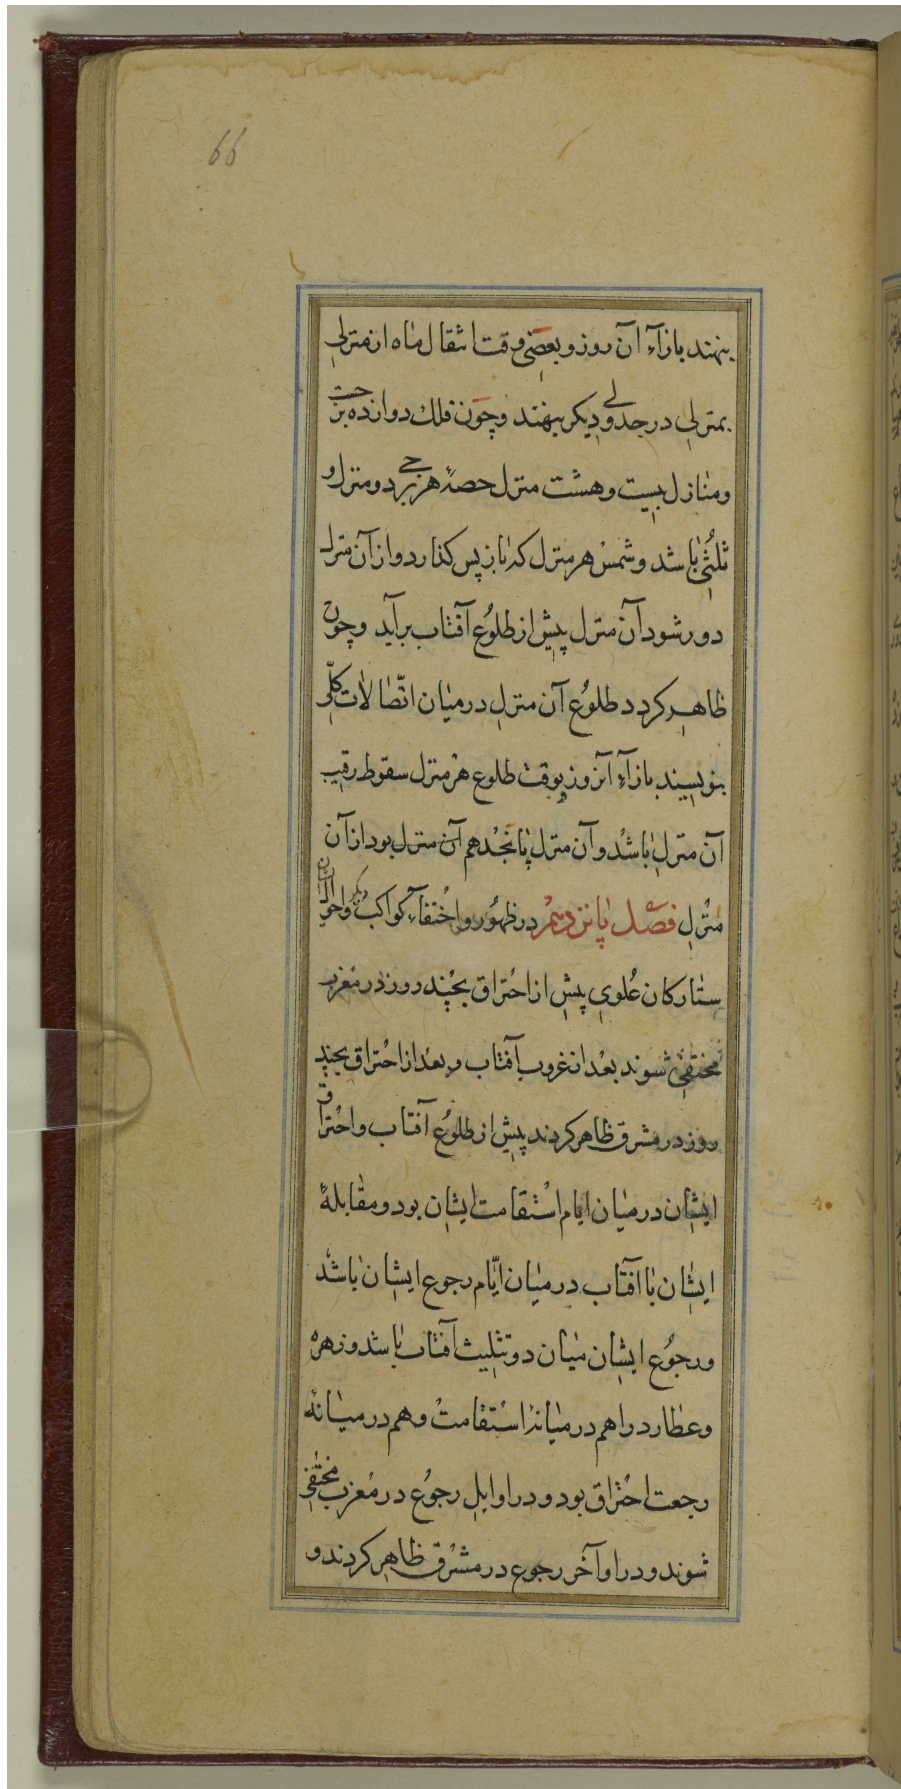 66
بنهند بازآء آن روز و بعضی وقت انتقال ماه از منزلی
بمنزلی در جدولی دیکر بنهند و چون فلک دوازده برجست
و منازل بیست و هشت منزل حصهٔ هر برجی دو منزل و
ثلثی باشد و شمس هر منزل که باز پس کذارد و از آن منزل
دور شود آن منزل پیش از طلوع آفتاب برآید و چون
ظاهر کردد طلوع آن منزل در میان اتّصالات کلّی
بنویسند بازآء آنروز بوقت طلوع هر منزل سقوط رقیب
آن منزل باشد و آن منزل پانجدهم آن منزل بود از آن
منزل فصل پانزدهم در ظهور و اختفآء کواکب دیکر و احوال ایشان
ستارکان علوی پیش از احتراق بچند روز در مغرب
مختفی شوند بعد از غروب آفتاب و بعد از احتراق بچند
روز در مشرق ظاهر کردند پیش از طلوع آفتاب و احتراق
ایشان در میان ایام استقامت ایشان بود و مقابلهٔ
ایشان با آفتاب در میان ایّام رجوع ایشان باشد
و رجوع ایشان میان دو تثلیث آفتاب باشد و زهره
و عطارد را هم در میانهٔ استقامت و هم در میانهٔ
رجعت احتراق بود و در اوایل رجوع در مغرب مختفی
شوند و در اوآخر رجوع در مشرق ظاهر کردند و